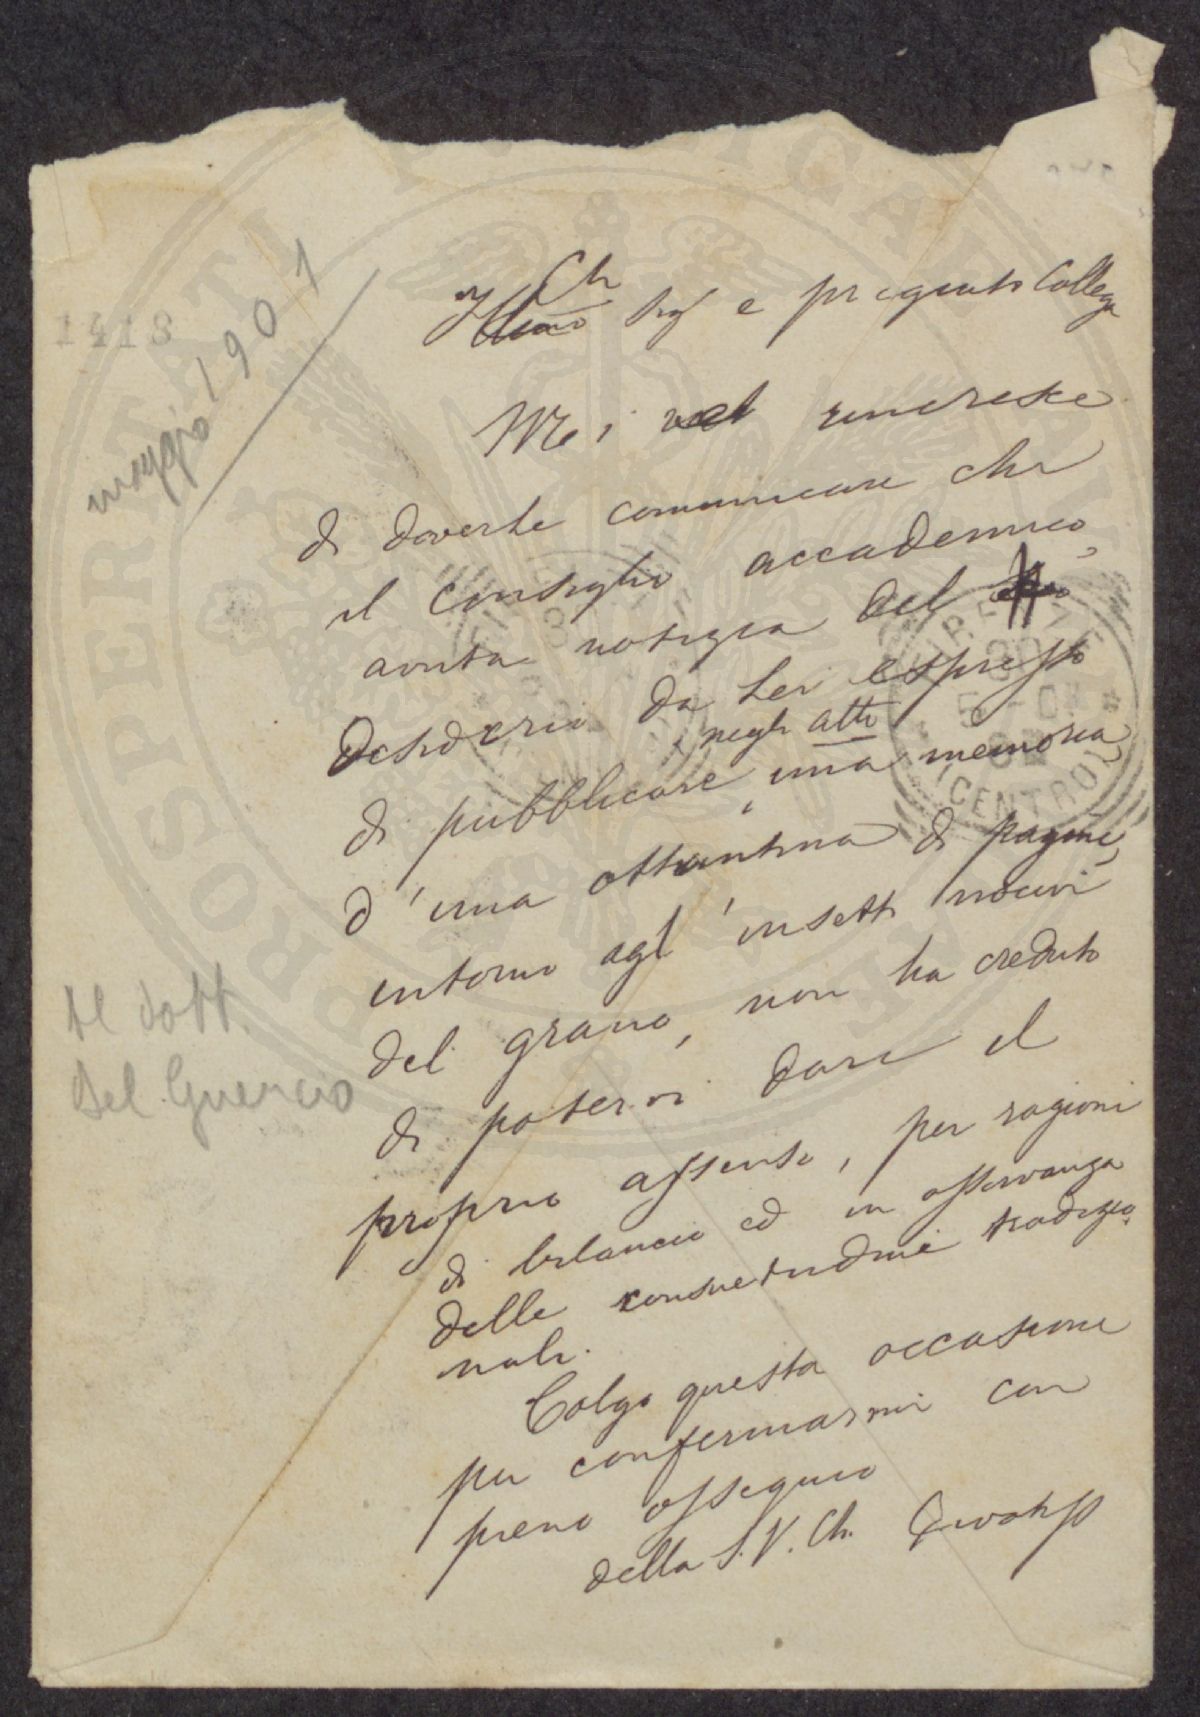 1418
maggio 1901
Ch
Illmo Sig e pregiato Collega
Mi rincresce
di doverle comunicare che
il Consiglio accademico,
avuta notizia del
desiderio da Lei espresso
negli Atti
di pubblicare, una memoria,
d'una ottantina di pagine,
intorno agl'insetti nocivi
del grano, non ha creduto
di potervi dare il
proprio assenso, per ragioni
di bilancio ed in osservanza
delle consuetudini tradizio-
nali.
Colgo questa occasione
per confermarmi con
pieno ossequio
della S. V. Ch. Devotiss
Al dott.
Del Guercio
FIRENZE
5-01
(CENTRO)
PROSPERITATI PUBLICAE AUGENDAE